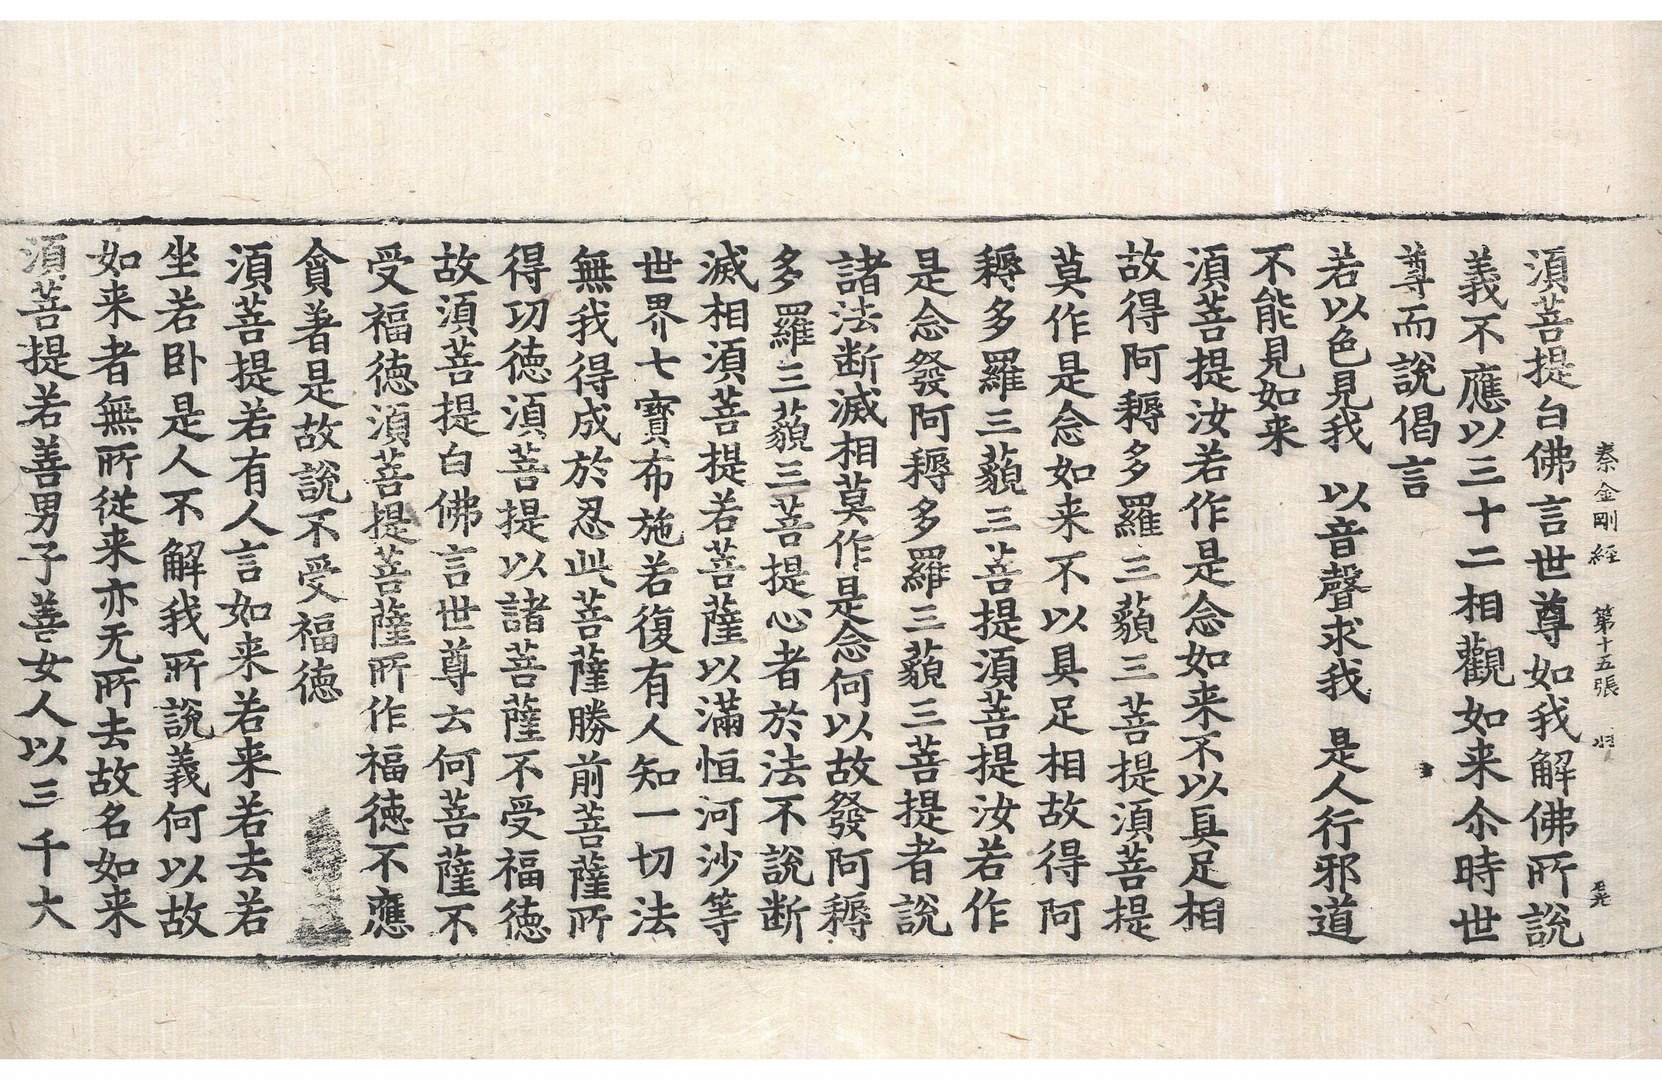 秦金剛經　第十五張　羽
須菩提白佛言世尊如我解佛所說
義不應以三十二相觀如来尒時世
尊而說偈言
若以色見我　以音聲求我　是人行邪道
不能見如来
須菩提汝若作是念如来不以具足相
故得阿耨多羅三藐三菩提須菩提
莫作是念如来不以具足相故得阿
耨多羅三藐三菩提須菩提汝若作
是念發阿耨多羅三藐三菩提者說
諸法断滅相莫作是念何以故發阿耨
多羅三藐三菩提心者於法不說断
滅相須菩提若菩薩以滿恒河沙等
世界七寳布施若復有人知一切法
無我得成於忍此菩薩勝前菩薩所
得功徳須菩提以諸菩薩不受福徳
故須菩提白佛言世尊云何菩薩不
受福徳須菩提菩薩所作福徳不應
貪著是故說不受福徳
須菩提若有人言如来若来若去若
坐若卧是人不解我所說義何以故
如来者無所從来亦无所去故名如来
須菩提若善男子善女人以三千大